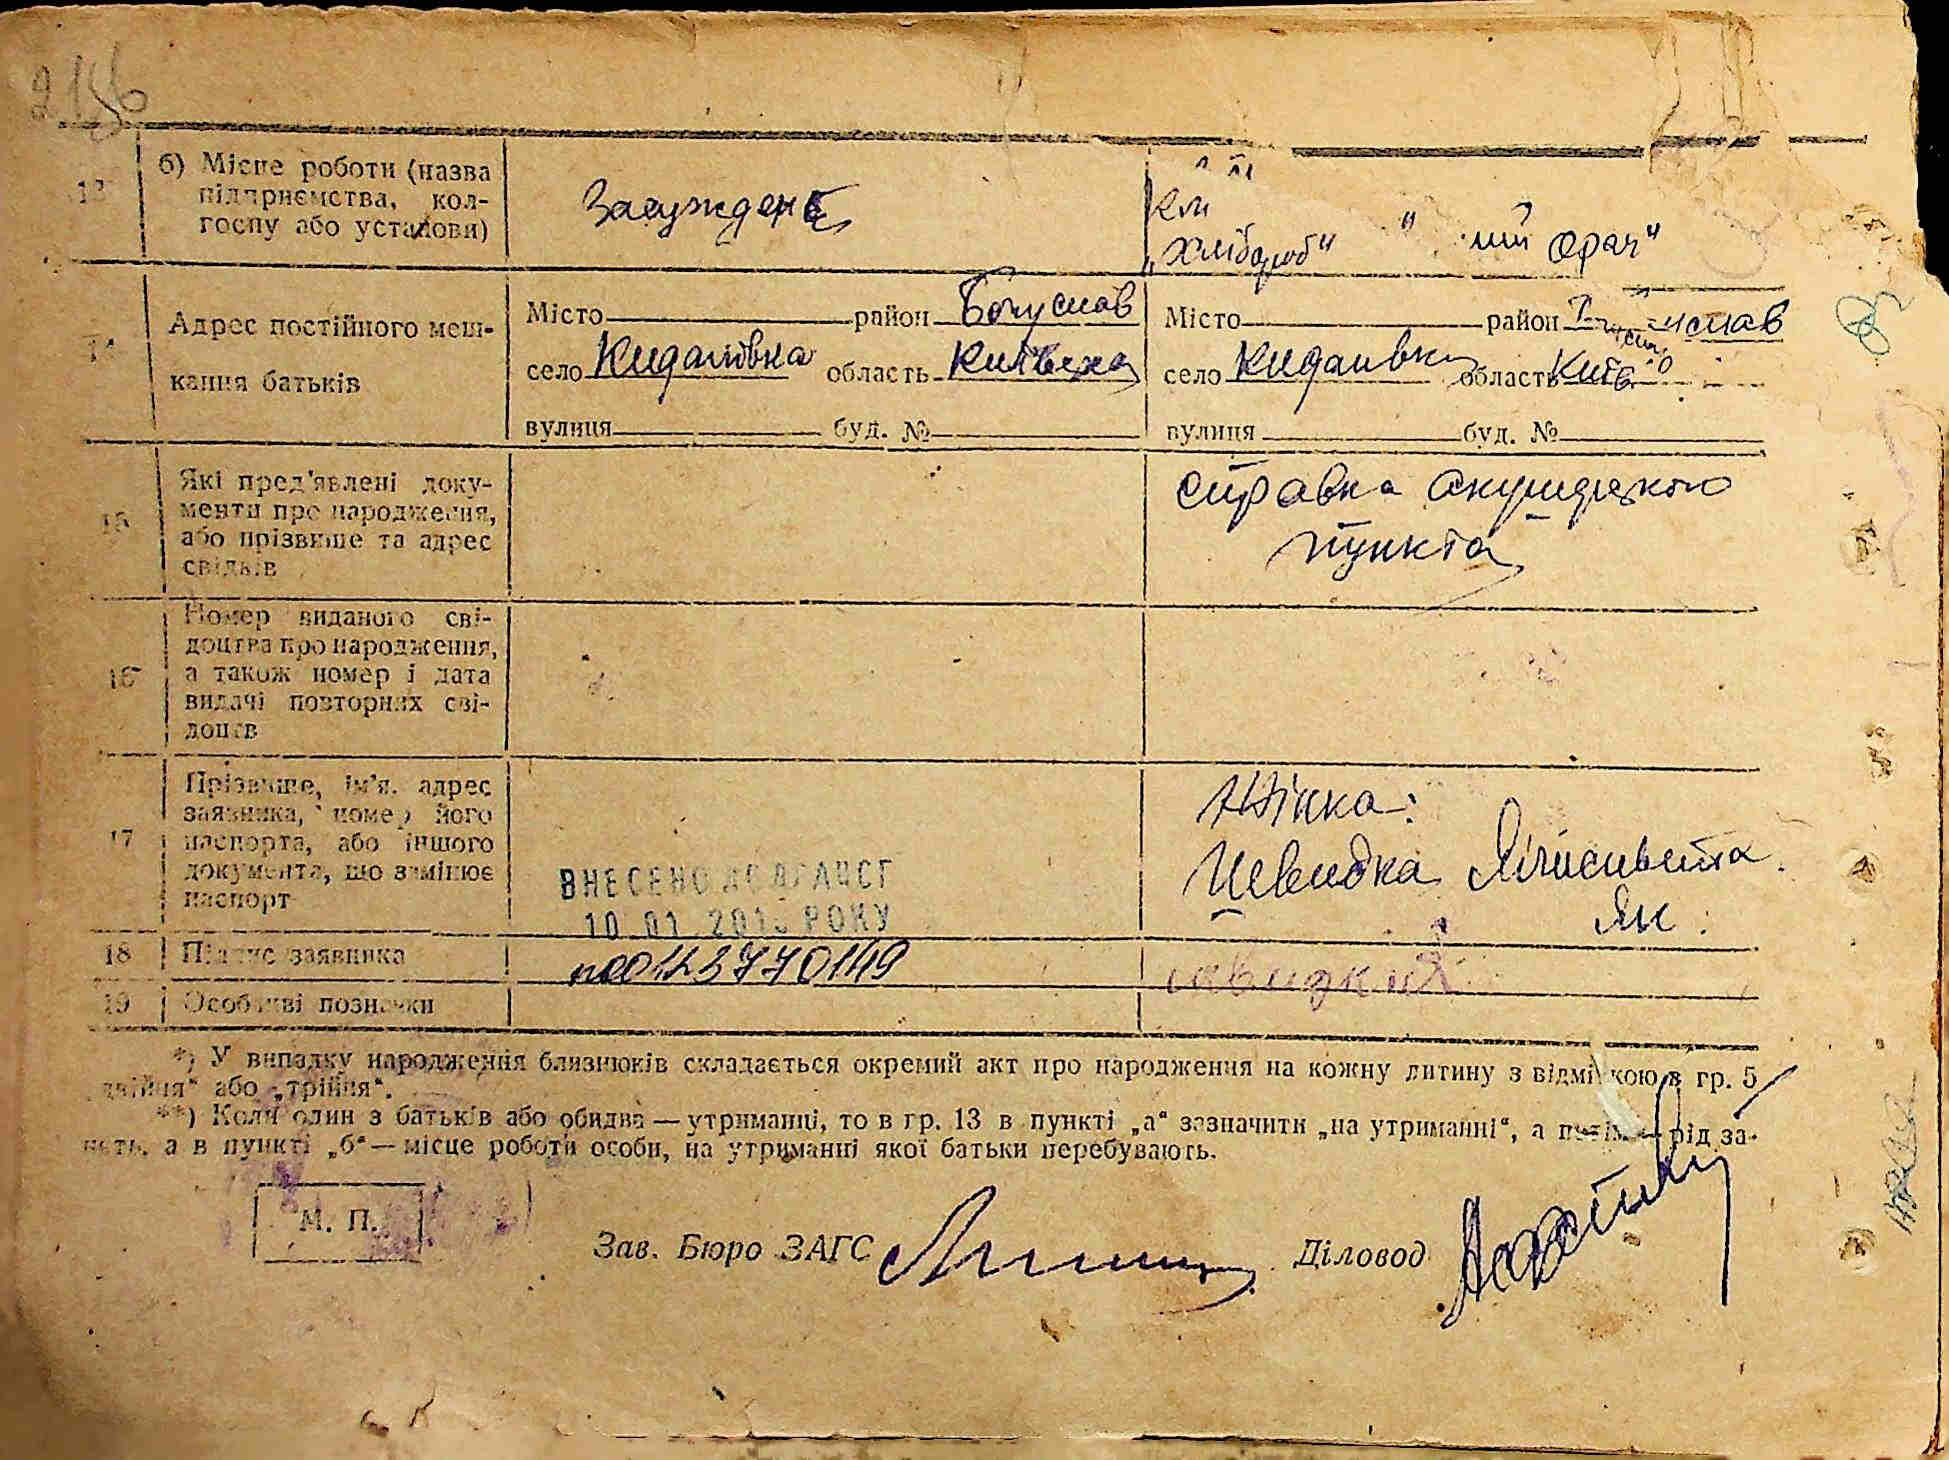 2156
13 б) Місце роботи (назва підприємства, колгоспу або установи)
Засужден
"Хлібороб" " ний орач"
14 Адрес постійного мешкання батьків
Місто район Богуслав
село Кидалівка область Київська
вулиця буд. №
Місто район
село Кидалівка область Київ
вулиця буд. №
15 Які пред'явлені документи про народження, або прізвище та адрес свідків
справка акушерского
пункта
16 Номер виданого свідоцтва про народження, а також номер і дата видачі повторних свідоцтв
17 Прізвище, ім'я, адрес заявника, номер його паспорта, або іншого документа, що замінює паспорт
Жінка:
Швидка
Як.
ВНЕСЕНО ДО ДРАЦСГ
10 01 201 РОКУ
18 Підпис заявника
00123770149
19 Особливі позначки
*) У випадку народження близнюків складається окремий акт про народження на кожну дитину з відміткою в гр. 5
„двійня" або „трійня".
**) Коли один з батьків або обидва — утриманці, то в гр. 13 в пункті „а" зазначити „на утриманні", а потім — рід за-
нять, а в пункті „б" — місце роботи особи, на утриманні якої батьки перебувають.
М. П.
Зав. Бюро ЗАГС Діловод